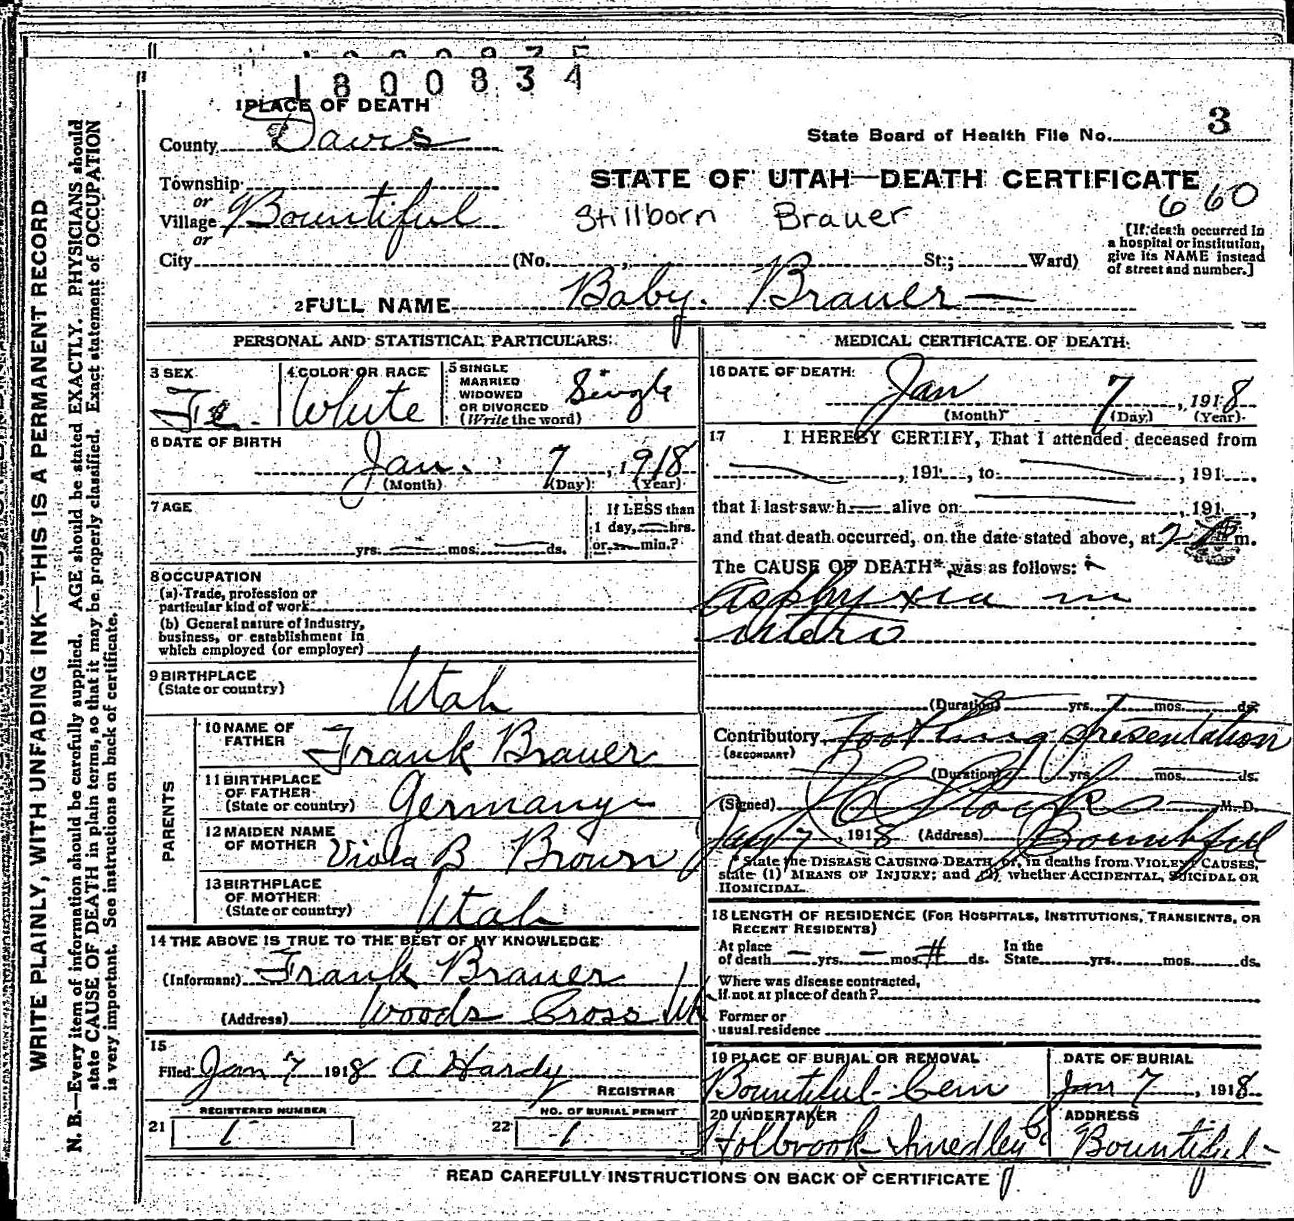 1800834
1 PLACE OF DEATH
County Davis
State Board of Health File No. 3
Township
or
Village Bountiful
or
City
STATE OF UTAH—DEATH CERTIFICATE
660
Stillborn Brauer
[If death occurred in a hospital or institution, give its NAME instead of street and number.]
(No. , St.; Ward)
2 FULL NAME Baby. Brauer
PERSONAL AND STATISTICAL PARTICULARS:
3 SEX Fe.
4 COLOR OR RACE White
5 SINGLE MARRIED WIDOWED OR DIVORCED (Write the word) Single
6 DATE OF BIRTH
Jan. 7, 1918
(Month) (Day) (Year)
7 AGE
yrs. mos. ds.
If LESS than
1 day, hrs.
or min.?
8 OCCUPATION
(a) Trade, profession or
particular kind of work
(b) General nature of industry,
business, or establishment in
which employed (or employer)
9 BIRTHPLACE
(State or country) Utah
PARENTS
10 NAME OF
FATHER Frank Brauer
11 BIRTHPLACE
OF FATHER
(State or country) Germany
12 MAIDEN NAME
OF MOTHER Viola B Brown
13 BIRTHPLACE
OF MOTHER
(State or country) Utah
14 THE ABOVE IS TRUE TO THE BEST OF MY KNOWLEDGE
(Informant) Frank Brauer
(Address) Woods Cross Ut
15
Filed Jan 7 1918 A Hardy
REGISTRAR
REGISTERED NUMBER
21 1
NO. OF BURIAL PERMIT
22 1
MEDICAL CERTIFICATE OF DEATH
16 DATE OF DEATH
Jan 7, 1918
(Month) (Day) (Year)
17 I HEREBY CERTIFY, That I attended deceased from
, 191 , to , 191 ,
that I last saw h alive on , 191 ,
and that death occurred, on the date stated above, at 2 m.
The CAUSE OF DEATH* was as follows:
Asphyxia in
utero
(Duration) yrs. mos. ds.
Contributory Footling presentation
(SECONDARY)
(Duration) yrs. mos. ds.
(Signed) Stocks M. D.
Jan 7, 1918 (Address) Bountiful
* State the DISEASE CAUSING DEATH, or, in deaths from VIOLENT CAUSES,
state (1) MEANS OF INJURY; and (2) whether ACCIDENTAL, SUICIDAL OR
HOMICIDAL.
18 LENGTH OF RESIDENCE (FOR HOSPITALS, INSTITUTIONS, TRANSIENTS, OR
RECENT RESIDENTS)
At place
of death yrs. mos. ds.
In the
State yrs. mos. ds.
Where was disease contracted,
if not at place of death?
Former or
usual residence
19 PLACE OF BURIAL OR REMOVAL
Bountiful Cem
DATE OF BURIAL
Jan 7, 1918
20 UNDERTAKER
Holbrook Smedley Co
ADDRESS
Bountiful
READ CAREFULLY INSTRUCTIONS ON BACK OF CERTIFICATE
WRITE PLAINLY, WITH UNFADING INK—THIS IS A PERMANENT RECORD
N. B.—Every item of information should be carefully supplied. AGE should be stated EXACTLY. PHYSICIANS should
state CAUSE OF DEATH in plain terms, so that it may be properly classified. Exact statement of OCCUPATION
is very important. See instructions on back of certificate.